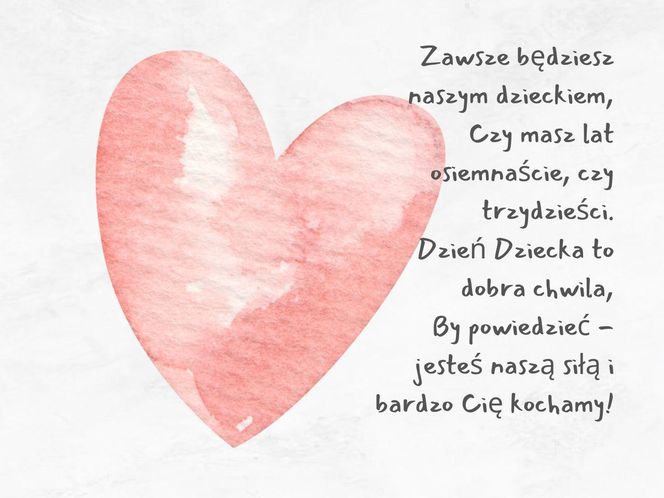 Zawsze będziesz
naszym dzieckiem,
Czy masz lat
osiemnaście, czy
trzydzieści.
Dzień Dziecka to
dobra chwila,
By powiedzieć –
jesteś naszą siłą i
bardzo Cię kochamy!